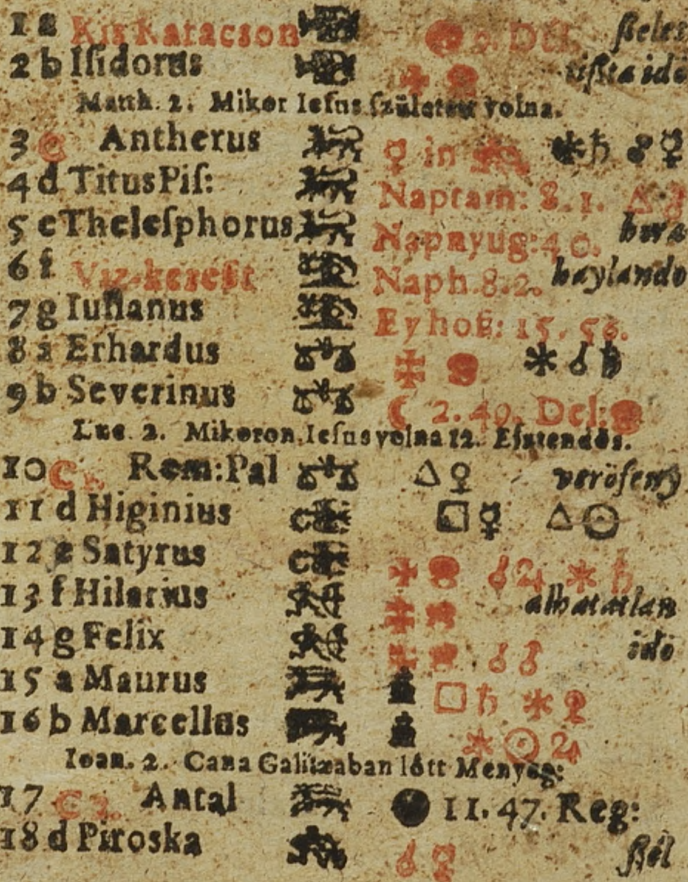 1 a Kis Karácson
2 b Iſidorus
Matth. 2. Mikor Ieſus ſzületett volna.
3 Antherus ♀ in ✶ ♄ ☿
4 d Titus Piſ: Naptam: 8. 1. △
5 e Theleſphorus Napnyug: 4 0.
6 f Viz-kereſt Naph. 8. 2. haylando
7 g Iulianus Eyhoß: 15. 56.
8 a Erhardus ✶ ☌ ♄
9 b Severinus ☾ 2. 49. Del:
Luc. 2. Mikoron Ieſus volna 12. Eſztendős.
10 C Rem: Pal △ ♀ veröfeny
11 d Higinius □ ☿ △ ☉
12 e Satyrus ☌ ♃ ✶ ♄
13 f Hilarius alhatatlan
14 g Felix idö
15 a Maurus □ ♄ ✶ ♀
16 b Marcellus ✶ ☉ ♃
Ioan. 2. Cana Galilæaban lött Menyeg:
17 C Antal ● 11. 47. Reg:
18 d Piroska ☌ ♀ ßél